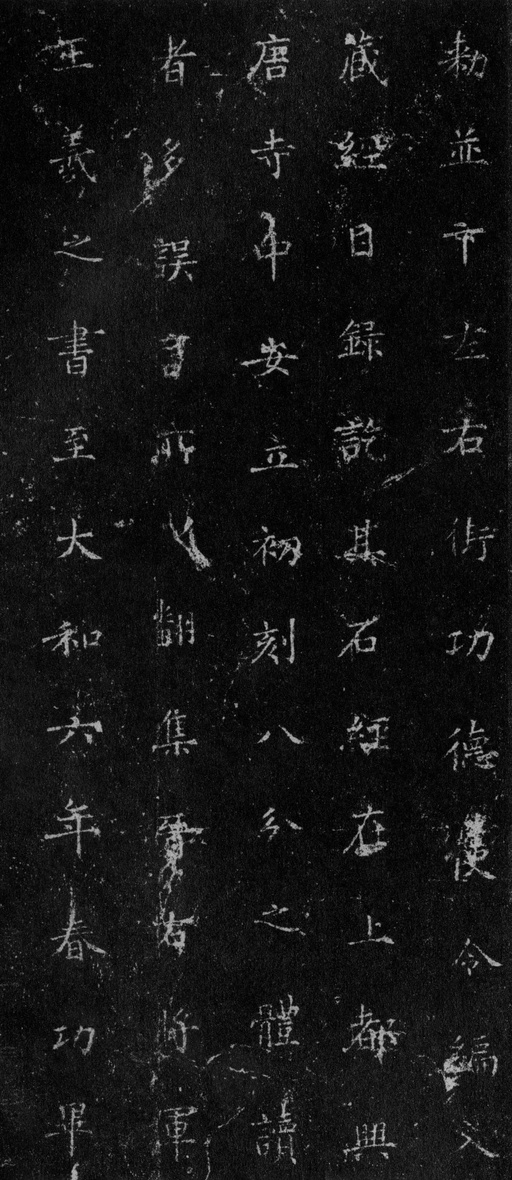 勅並左右街功德使令編入
藏經目録訖其石經在上都興
唐寺中安立初刻八分之體讀
者多誤所以翻集晉右將軍
王羲之書至大和六年春功畢